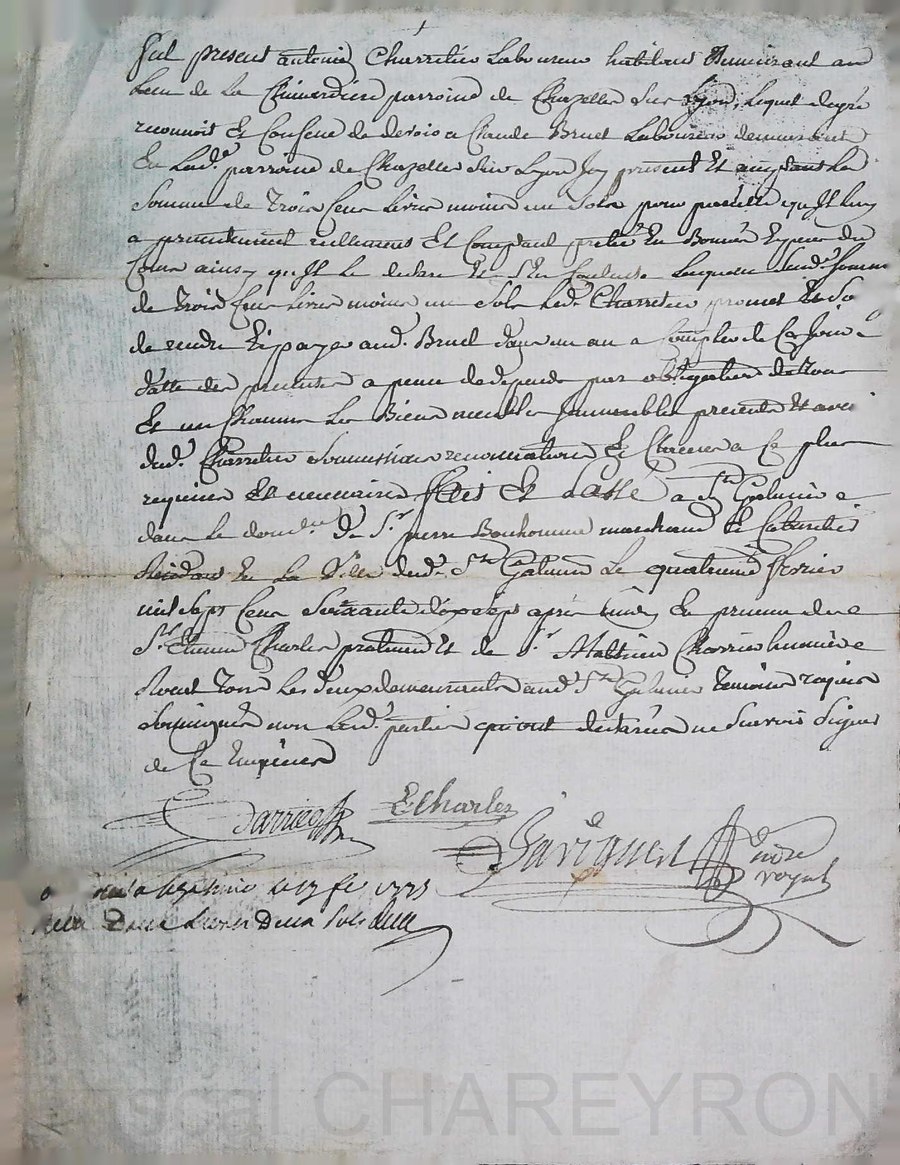 fut present antoine Charretier Laboureur habitant Demeurant au
Lieu de La parroisse de Chazelles Sur Lyon, lequel degré
reconnoit Et Confesse de devoir a Claude Bruel Laboureur demeurant
En Lad.e parroisse de Chazelles Sur Lyon Jcy present Et acceptant La
Somme de Trois Cens Livres moins un Sols pour prest qu'Jl luy
a presentement reellement Et Comptant En Bonnes Especes du
Cours ainsy qu'Jl Le declare Et S'En Contente Laquelle Susd.e Somme
de Trois Cens Livres moins un Sols Led. Charretier promet Et
de rendre Et payer aud. Bruel dans un an a Compter de Ce Jour
datte des presentes a peine de depends par obligation de Tous
Et un Chacuns Les Biens meubles Jmmeubles presents Et avenir
dud. Charretier Soumissions renonciations Et Clauses a Ce plus
requises Et necessaires fait Et Passé a St Galmier
dans Le domicile De Sr pierre Bonhomme marchand Et Cabaretier
Residant En La Ville dud. St Galmier Le quatrieme fevrier
mil Sept Cens Soixante dix Sept apres midy En presence de
Sr Etienne Charles praticien Et de Sr Mathieu
Royal Tous Les deux demeurants aud. St Galmier Temoins requis
Soussignés non Lesd. parties qui ont declarées ne Scavoir Signer
de Ce Enquises
ECharles
Pavignert
nore
royal
a St galmie le fe
Livres Deux Sols
Pascal CHAREYRON